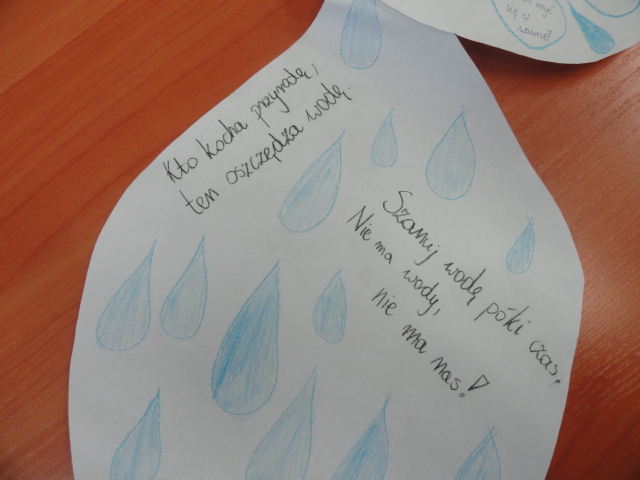 Kto kocha przyrodę,
ten oszczędza wodę.
Szanuj wodę póki czas,
Nie ma wody,
nie ma nas!
myć
się w
wannie?